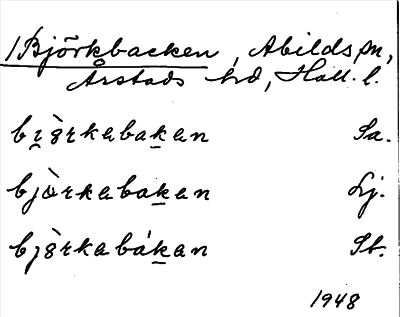 1 Björkbacken, Abilds sn,
Årstads hd, Hall. l.
bi̯òrkabak̲an Sa.
bjòrkabak̲an Lj.
bjòrkabák̲an St.
1948